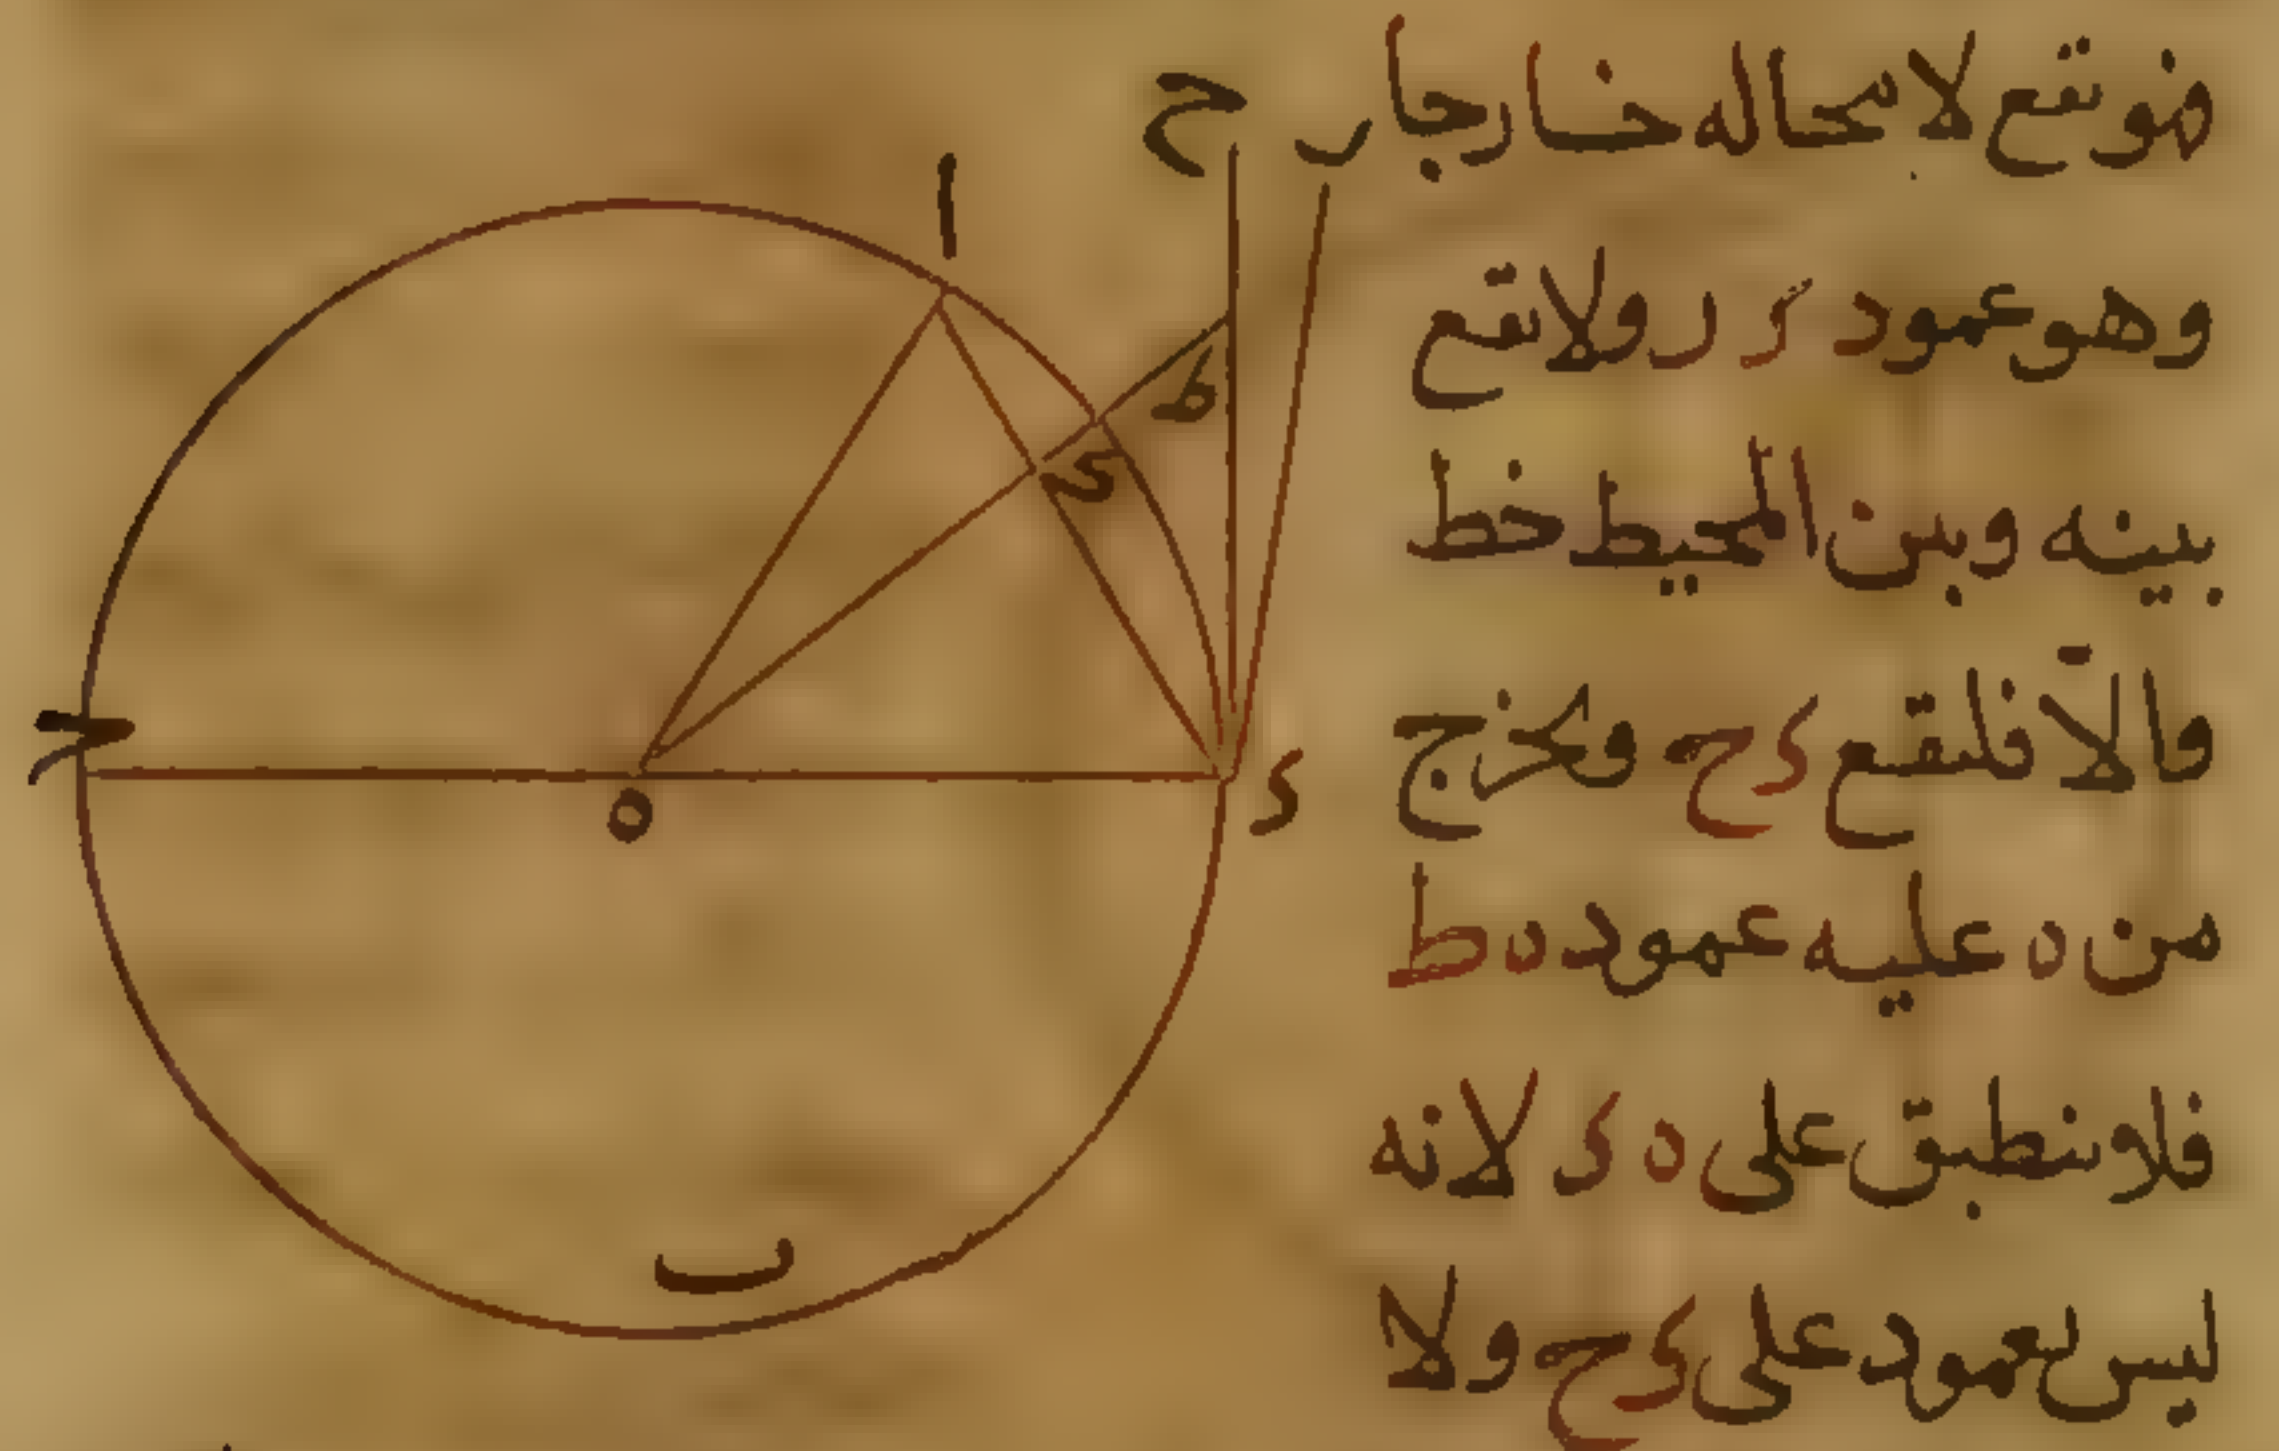 فهو يقع لا محاله خارجا
وهو عمود د ر ولا يقع
بينه وبين المحيط خط
والا فليقع د ح ونخرج
من ه عليه عمود ه ط
فلا ينطبق على ه د لانه
ليس بعمود على د ح ولا
ح
ر
ا
ط
ى
ح
ه
د
ب